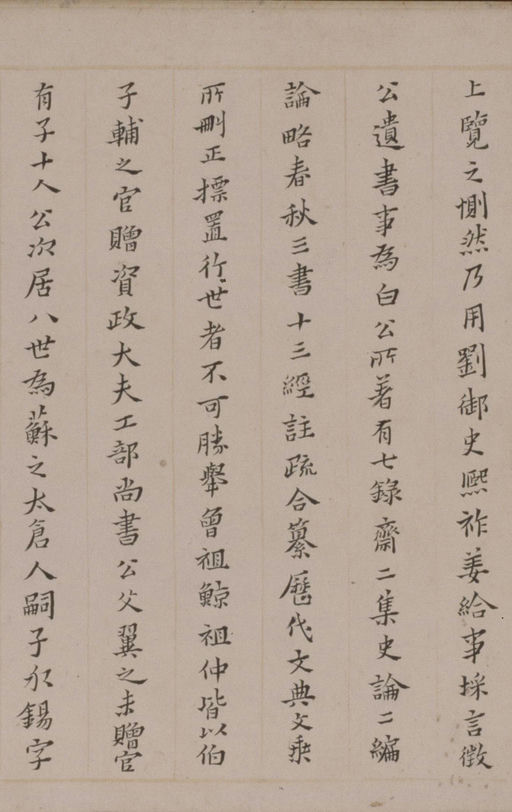 上覽之惻然乃用劉御史熙祚姜給事埰言徵
公遺書事為白公所著有七錄齋二集史論二編
論略春秋三書十三經註疏合纂歷代文典文乘
所刪正標置行世者不可勝舉曾祖鯨祖仲皆以伯
子輔之官贈資政大夫工部尚書公父翼之未贈官
有子十人公次居八世為蘇之太倉人嗣子永錫字